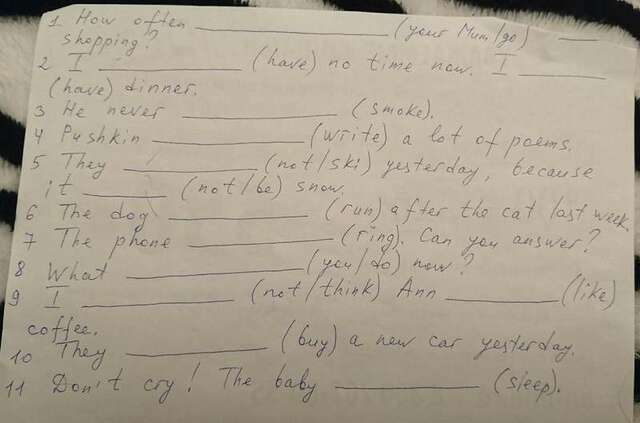 1 How often ____________ (your Mum/go) ___
shopping?
2 I ____________ (have) no time now. I ________
(have) dinner.
3 He never ____________ (smoke).
4 Pushkin ____________ (write) a lot of poems.
5 They ____________ (not/ski) yesterday, because
it ______ (not/be) snow.
6 The dog ____________ (run) after the cat last week.
7 The phone ____________ (ring). Can you answer?
8 What ____________ (you/do) now?
9 I ____________ (not/think) Ann ________ (like)
coffee.
10 They ____________ (buy) a new car yesterday.
11 Don't cry! The baby ____________ (sleep).